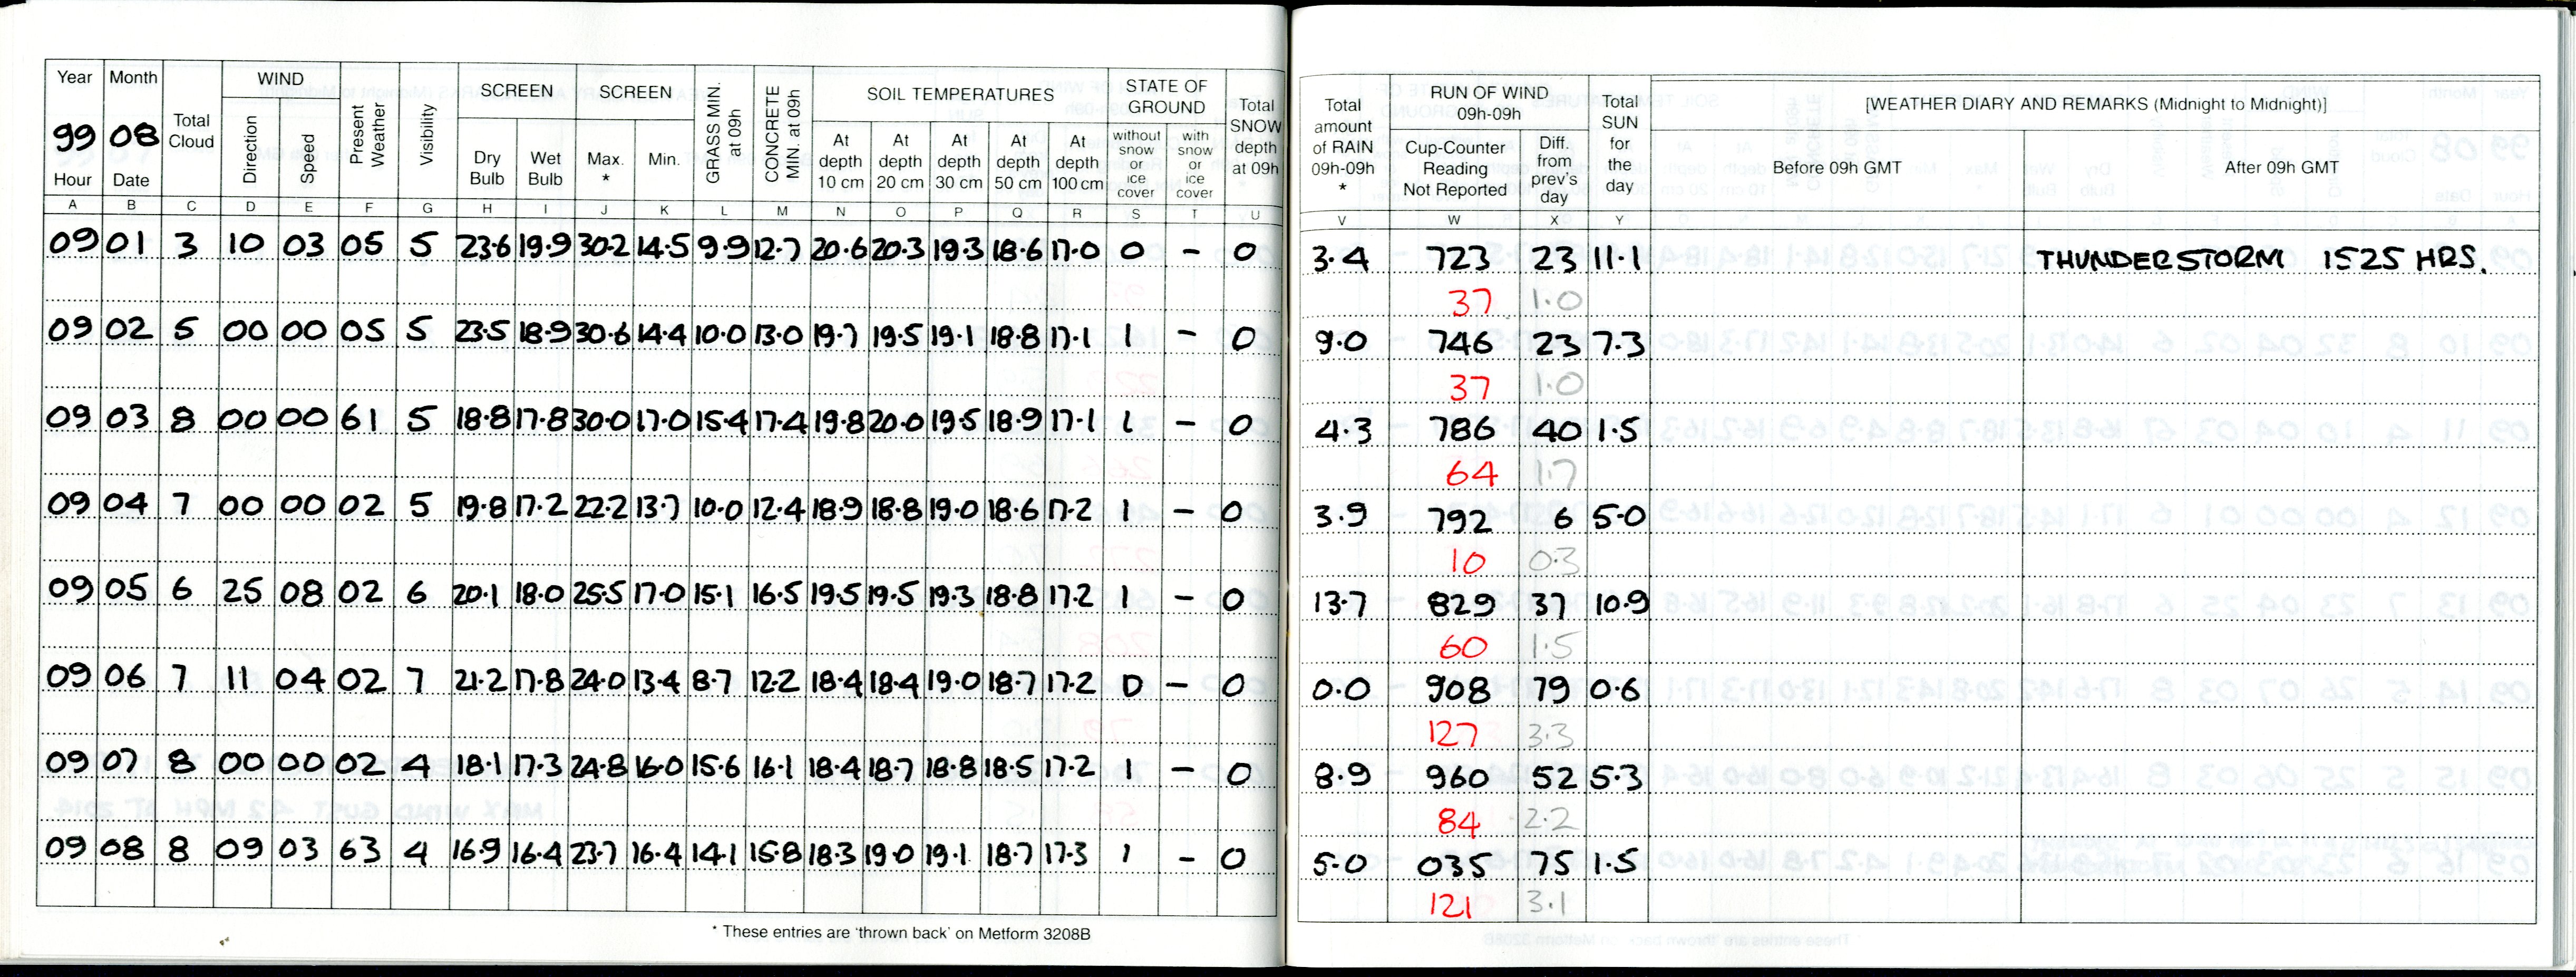 Year Month WIND SCREEN SCREEN SOIL TEMPERATURES STATE OF GROUND
99 08 Total Cloud Direction Speed Present Weather Visibility Dry Bulb Wet Bulb Max. * Min. GRASS MIN. at 09h CONCRETE MIN. at 09h At depth 10 cm At depth 20 cm At depth 30 cm At depth 50 cm At depth 100 cm without snow or ice cover with snow or ice cover Total SNOW depth at 09h
Hour Date
A B C D E F G H I J K L M N O P Q R S T U
09 01 3 10 03 05 5 23.6 19.9 30.2 14.5 9.9 12.7 20.6 20.3 19.3 18.6 17.0 0 - 0
09 02 5 00 00 05 5 23.5 18.9 30.6 14.4 10.0 13.0 19.7 19.5 19.1 18.8 17.1 1 - 0
09 03 8 00 00 61 5 18.8 17.8 30.0 17.0 15.4 17.4 19.8 20.0 19.5 18.9 17.1 1 - 0
09 04 7 00 00 02 5 19.8 17.2 22.2 13.7 10.0 12.4 18.9 18.8 19.0 18.6 17.2 1 - 0
09 05 6 25 08 02 6 20.1 18.0 25.5 17.0 15.1 16.5 19.5 19.5 19.3 18.8 17.2 1 - 0
09 06 7 11 04 02 7 21.2 17.8 24.0 13.4 8.7 12.2 18.4 18.4 19.0 18.7 17.2 0 - 0
09 07 8 00 00 02 4 18.1 17.3 24.8 16.0 15.6 16.1 18.4 18.7 18.8 18.5 17.2 1 - 0
09 08 8 09 03 63 4 16.9 16.4 23.7 16.4 14.1 15.8 18.3 19.0 19.1 18.7 17.3 1 - 0
* These entries are 'thrown back' on Metform 3208B
Total amount of RAIN 09h-09h * RUN OF WIND 09h-09h Cup-Counter Reading Not Reported Diff. from prev's day Total SUN for the day [WEATHER DIARY AND REMARKS (Midnight to Midnight)]
Before 09h GMT After 09h GMT
V W X Y
3.4 723 23 11.1 THUNDERSTORM 1525 HRS.
37 1.0
9.0 746 23 7.3
37 1.0
4.3 786 40 1.5
64 1.7
3.9 792 6 5.0
10 0.3
13.7 829 37 10.9
60 1.5
0.0 908 79 0.6
127 3.3
8.9 960 52 5.3
84 2.2
5.0 035 75 1.5
121 3.1